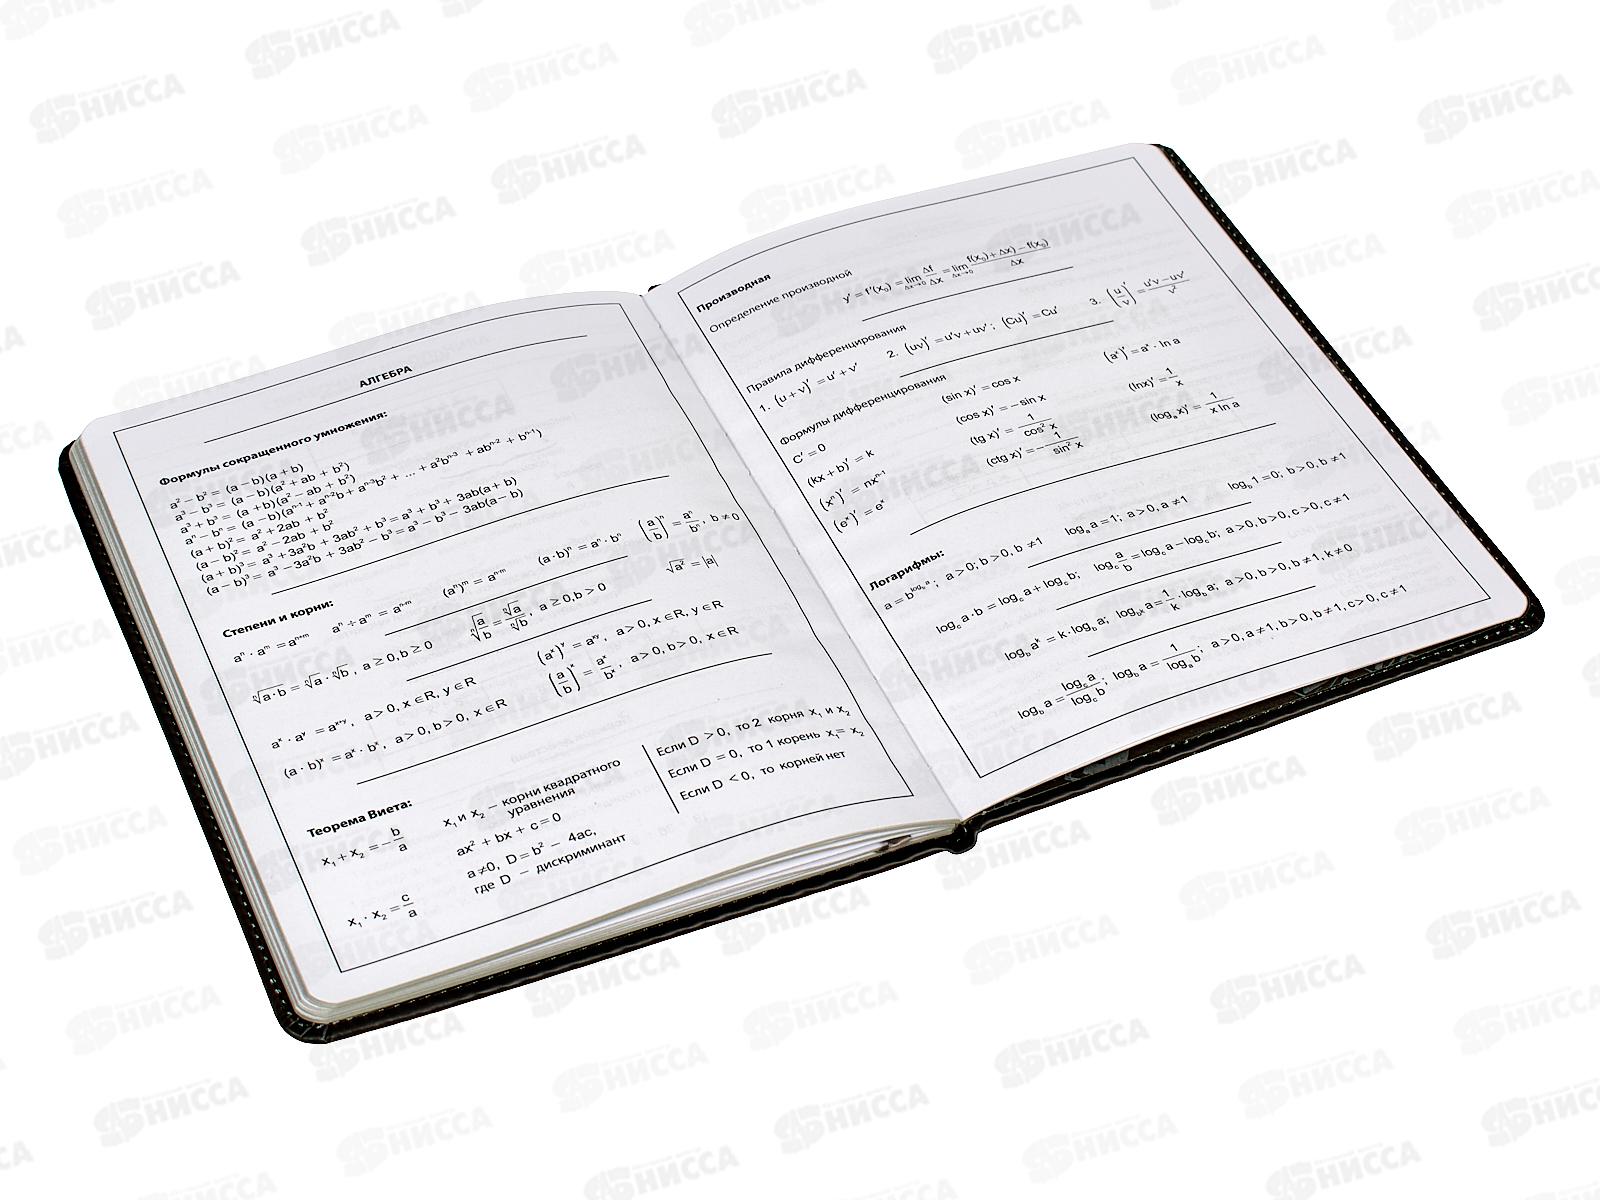 АЛГЕБРА
Формулы сокращенного умножения:
a² − b² = (a − b)(a + b)
a³ − b³ = (a − b)(a² + ab + b²)
a³ + b³ = (a + b)(a² − ab + b²)
aⁿ − bⁿ = (a − b)(aⁿ⁻¹ + aⁿ⁻²b + aⁿ⁻³b² + ... + a²bⁿ⁻³ + abⁿ⁻² + bⁿ⁻¹)
(a + b)² = a² + 2ab + b²
(a − b)² = a² − 2ab + b²
(a + b)³ = a³ + 3a²b + 3ab² + b³ = a³ + b³ + 3ab(a + b)
(a − b)³ = a³ − 3a²b + 3ab² − b³ = a³ − b³ − 3ab(a − b)
Степени и корни:
aⁿ · aᵐ = aⁿ⁺ᵐ aⁿ ÷ aᵐ = aⁿ⁻ᵐ (aⁿ)ᵐ = aⁿ·ᵐ (a·b)ⁿ = aⁿ · bⁿ (a/b)ⁿ = aⁿ/bⁿ, b ≠ 0
ⁿ√(a·b) = ⁿ√a · ⁿ√b, a ≥ 0, b ≥ 0 ⁿ√(a/b) = ⁿ√a/ⁿ√b, a ≥ 0, b > 0 √a² = |a|
aˣ · aʸ = aˣ⁺ʸ, a > 0, x ∈ R, y ∈ R (aˣ)ʸ = aˣʸ, a > 0, x ∈ R, y ∈ R
(a · b)ˣ = aˣ · bˣ, a > 0, b > 0, x ∈ R (a/b)ˣ = aˣ/bˣ, a > 0, b > 0, x ∈ R
Теорема Виета:
x₁ + x₂ = −b/a
x₁ · x₂ = c/a
x₁ и x₂ − корни квадратного
уравнения
ax² + bx + c = 0
a ≠ 0, D = b² − 4ac,
где D − дискриминант
Если D > 0, то 2 корня x₁ и x₂
Если D = 0, то 1 корень x₁ = x₂
Если D < 0, то корней нет
Производная
Определение производной
y' = f'(x₀) = lim Δx→0 Δf/Δx = lim Δx→0 (f(x₀) + Δx) − f(x₀)/Δx
Правила дифференцирования
1. (u + v)' = u' + v' 2. (uv)' = u'v + uv'; (Cu)' = Cu' 3. (u/v)' = (u'v − uv')/v²
Формулы дифференцирования
C' = 0
(kx + b)' = k
(xⁿ)' = nxⁿ⁻¹
(eˣ)' = eˣ
(sin x)' = cos x
(cos x)' = − sin x
(tg x)' = 1/cos² x
(ctg x)' = − 1/sin² x
(aˣ)' = aˣ · ln a
(lnx)' = 1/x
(logₐ x)' = 1/(x ln a)
Логарифмы:
a = b^(log_b a); a > 0; b > 0, b ≠ 1 logₐ a = 1; a > 0, a ≠ 1 log_b 1 = 0; b > 0, b ≠ 1
log_c a · b = log_c a + log_c b; log_c a/b = log_c a − log_c b; a > 0, b > 0, c > 0, c ≠ 1
log_b aᵏ = k · log_b a; log_bᵏ a = 1/k · log_b a; a > 0, b > 0, b ≠ 1, k ≠ 0
log_b a = log_c a/log_c b; log_b a = 1/logₐ b; a > 0, a ≠ 1, b > 0, b ≠ 1, c > 0, c ≠ 1
НИССА